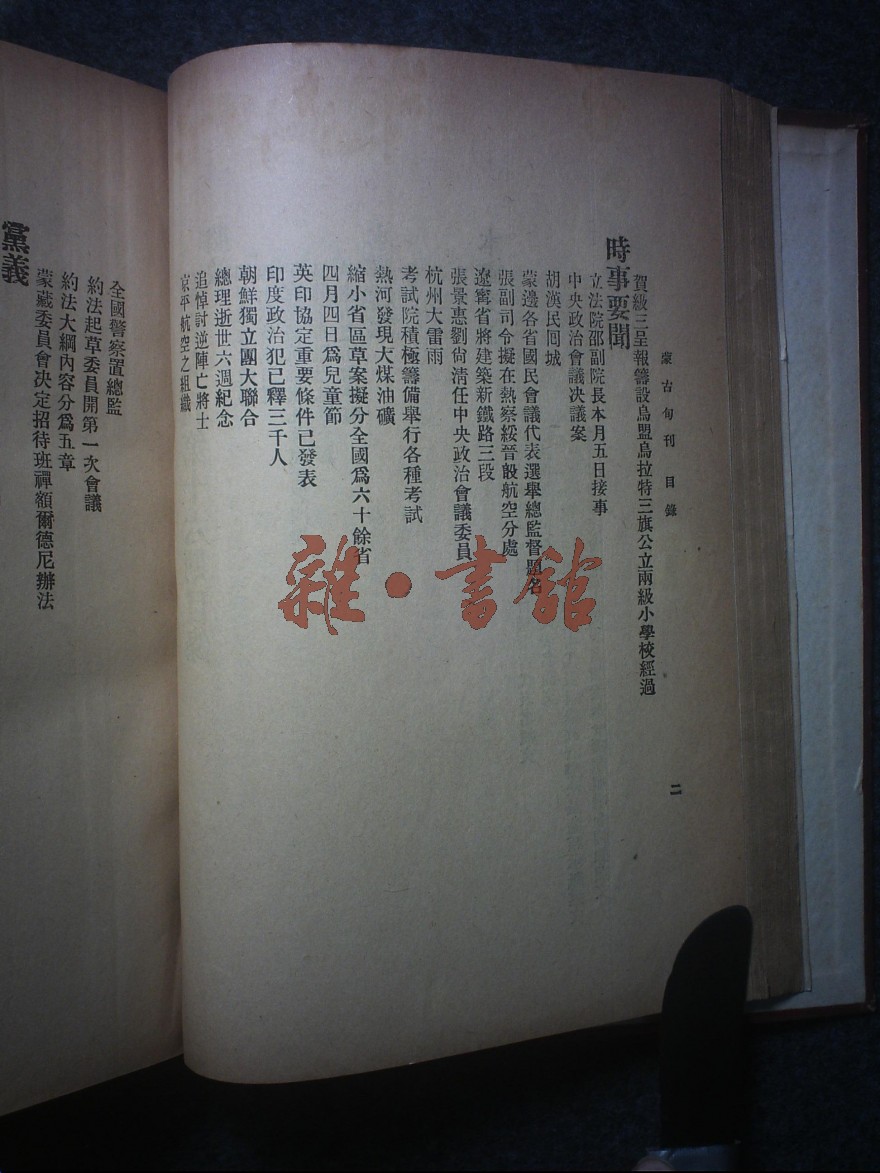 蒙古旬刊 目錄
二
賀級三呈報籌設烏盟烏拉特三旗公立兩級小學校經過
時事要聞
立法院邵副院長本月五日接事
中央政治會議決議案
胡漢民回城
蒙邊各省國民會議代表選舉總監督題名
張副司令擬在熱察綏晉設航空分處
遼寧省將建築新鐵路三段
張景惠劉尚清任中央政治會議委員
杭州大雷雨
考試院積極籌備舉行各種考試
熱河發現大煤油礦
縮小省區草案擬分全國爲六十餘省
四月四日爲兒童節
英印協定重要條件已發表
印度政治犯已釋三千人
朝鮮獨立團大聯合
總理逝世六週紀念
追悼討逆陣亡將士
京平航空之組織
全國警察置總監
約法起草委員開第一次會議
約法大綱內容分爲五章
蒙藏委員會決定招待班禪額爾德尼辦法
黨義
雜·書館